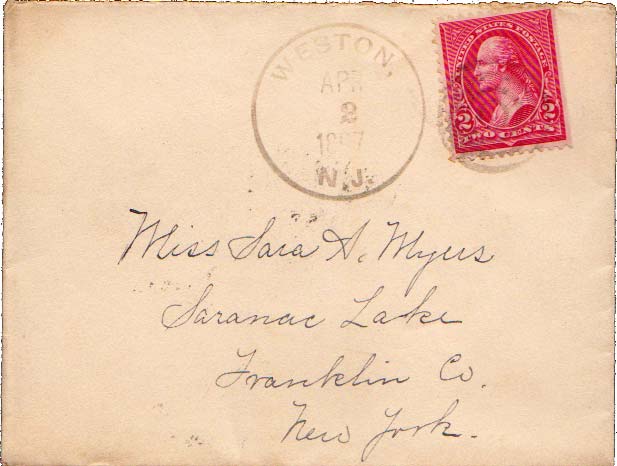 WESTON,
APR
2
1897
N.J.
UNITED STATES POSTAGE
2 2
TWO CENTS
Miss Sara A. Myers
Saranac Lake
Franklin Co.
New York.